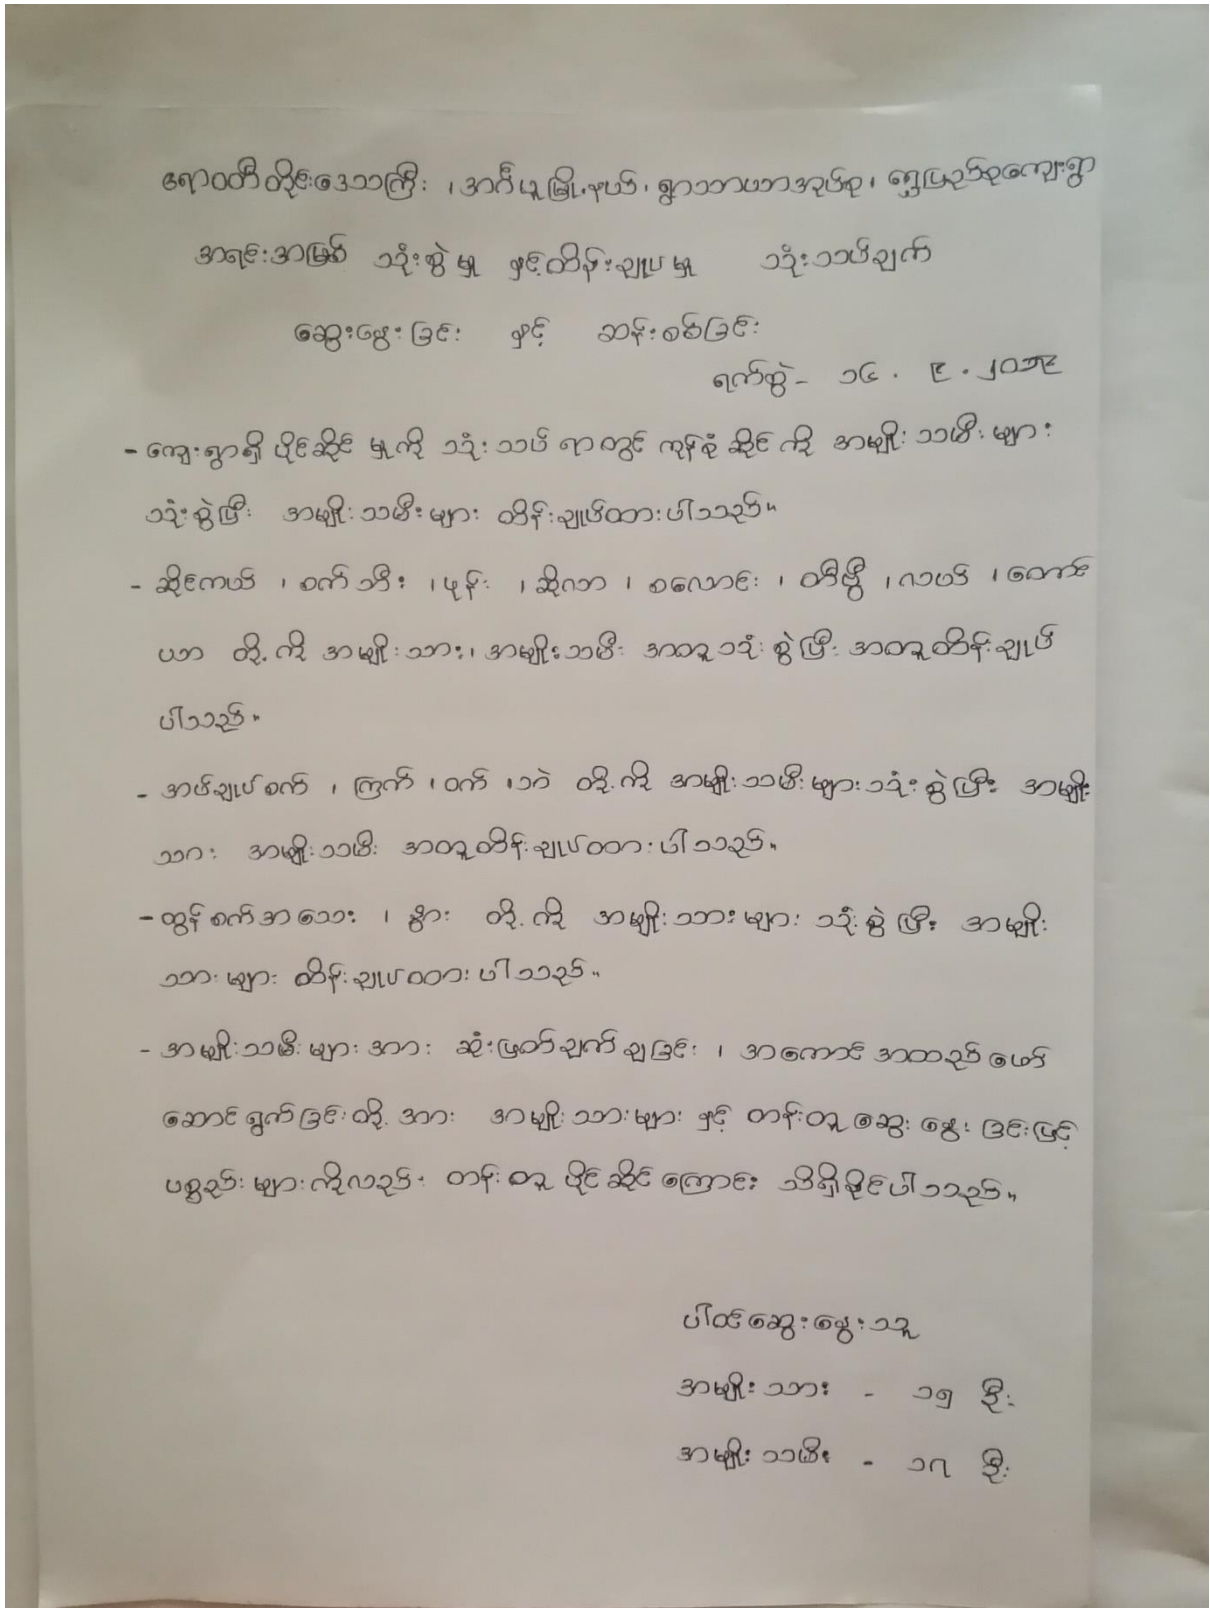 ဧရာဝတီတိုင်းဒေသကြီး ၊ အင်္ဂပူမြို့နယ်၊ ရွာသာယာအုပ်စု ၊ ရွှေပြည်စုကျေးရွာ
အရင်းအမြစ် သုံးစွဲမှု နှင့်ထိန်းချုပ်မှု သုံးသပ်ချက်
ဆွေးနွေးခြင်း နှင့် ဆန်းစစ်ခြင်း
ရက်စွဲ - ၁၆ . ၉ . ၂၀၁၉
- ကျေးရွာရှိ ပိုင်ဆိုင်မှုကို သုံးသပ်ရာတွင် ကုန်စုံဆိုင်ကို အမျိုးသမီးများ
သုံးစွဲပြီး အမျိုးသမီးများ ထိန်းချုပ်ထားပါသည်။
- ဆိုင်ကယ် ၊ စက်ဘီး ၊ ဖုန်း ၊ ဆိုလာ ၊ စလောင်း ၊ တီဗွီ ၊ လယ် ၊ တောင်
ယာ တို့ကို အမျိုးသား၊ အမျိုးသမီး အတူသုံးစွဲပြီး အတူထိန်းချုပ်
ပါသည်။
- အပ်ချုပ်စက် ၊ ကြက် ၊ ဝက် ၊ ဘဲ တို့ကို အမျိုးသမီးများသုံးစွဲပြီး အမျိုး
သား အမျိုးသမီး အတူထိန်းချုပ်ထားပါသည်။
- ထွန်စက်အသေး ၊ နွား တို့ကို အမျိုးသားများ သုံးစွဲပြီး အမျိုး
သားများ ထိန်းချုပ်ထားပါသည်။
- အမျိုးသမီးများအား ဆုံးဖြတ်ချက်ချခြင်း ၊ အကောင်အထည်ဖော်
ဆောင်ရွက်ခြင်းတို့အား အမျိုးသားများ နှင့် တန်းတူဆွေးနွေးခြင်းဖြင့်
ပစ္စည်းများကိုလည်း တန်းတူ ပိုင်ဆိုင်ကြောင်း သိရှိနိုင်ပါသည်။
ပါဝင်ဆွေးနွေးသူ
အမျိုးသား - ၁၅ ဦး
အမျိုးသမီး - ၁၇ ဦး